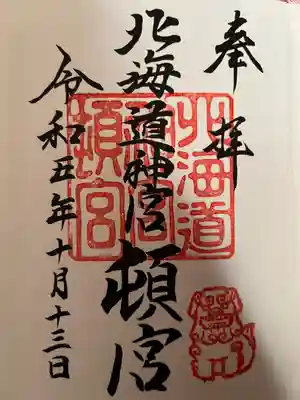 奉拝
北海道神宮頓宮
北海道
神宮
頓宮
令和五年十月十三日